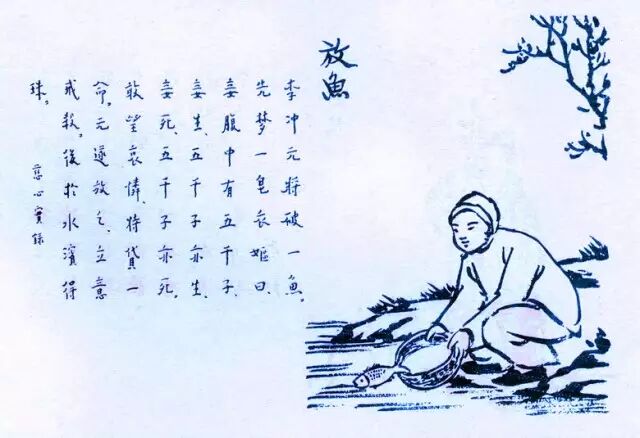 放魚
李冲元將破一魚。
先梦一皂衣嫗曰、
妾腹中有五千子、
妾生、五千子亦生、
妾死、五千子亦死。
敢望哀憐、特貸一
命。元遂放之、立意
戒殺。後於水濱得
珠。
慈心實錄